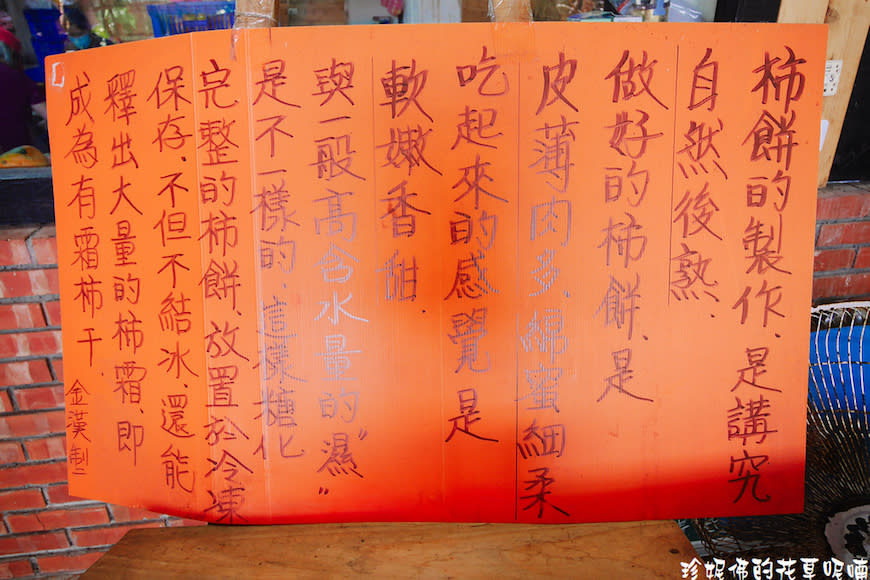 柿餅的製作、是講究
自然後熟、
做好的柿餅、是
皮薄肉多、綿蜜細柔
吃起來的感覺是
軟嫩香甜
與一般高含水量的"濕"
是不一樣的、這樣糖化
完整的柿餅、放置於冷凍
保存、不但不結冰、還能
釋出大量的柿霜、即
成為有霜柿干、
金漢制
珍妮佛的花草呢喃